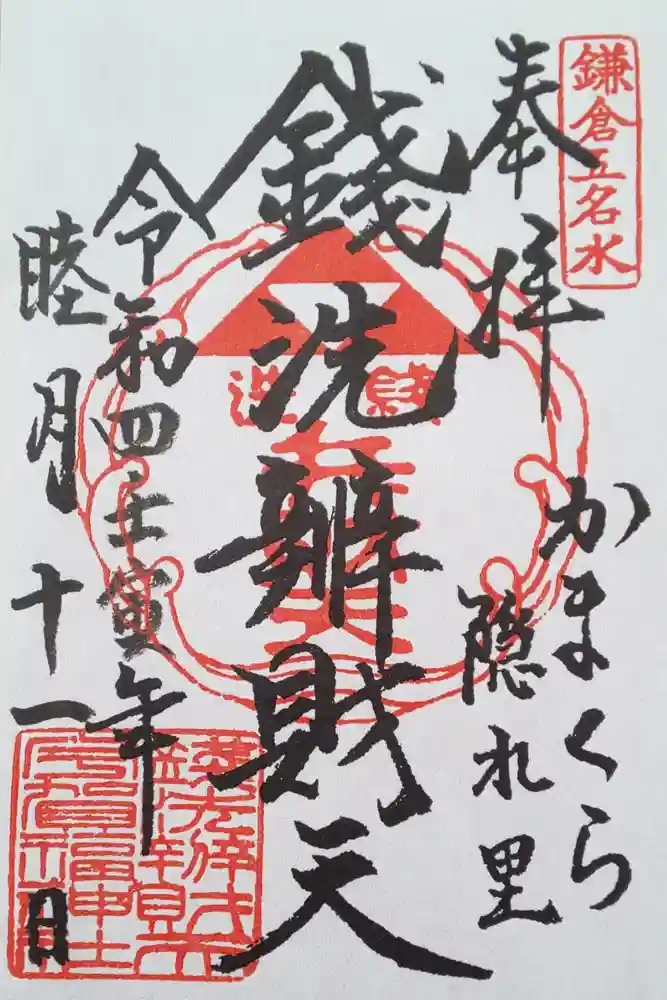 鎌倉五名水
奉拝
かまくら
隠れ里
錢洗辨財天
令和四壬寅年
睦月十一日